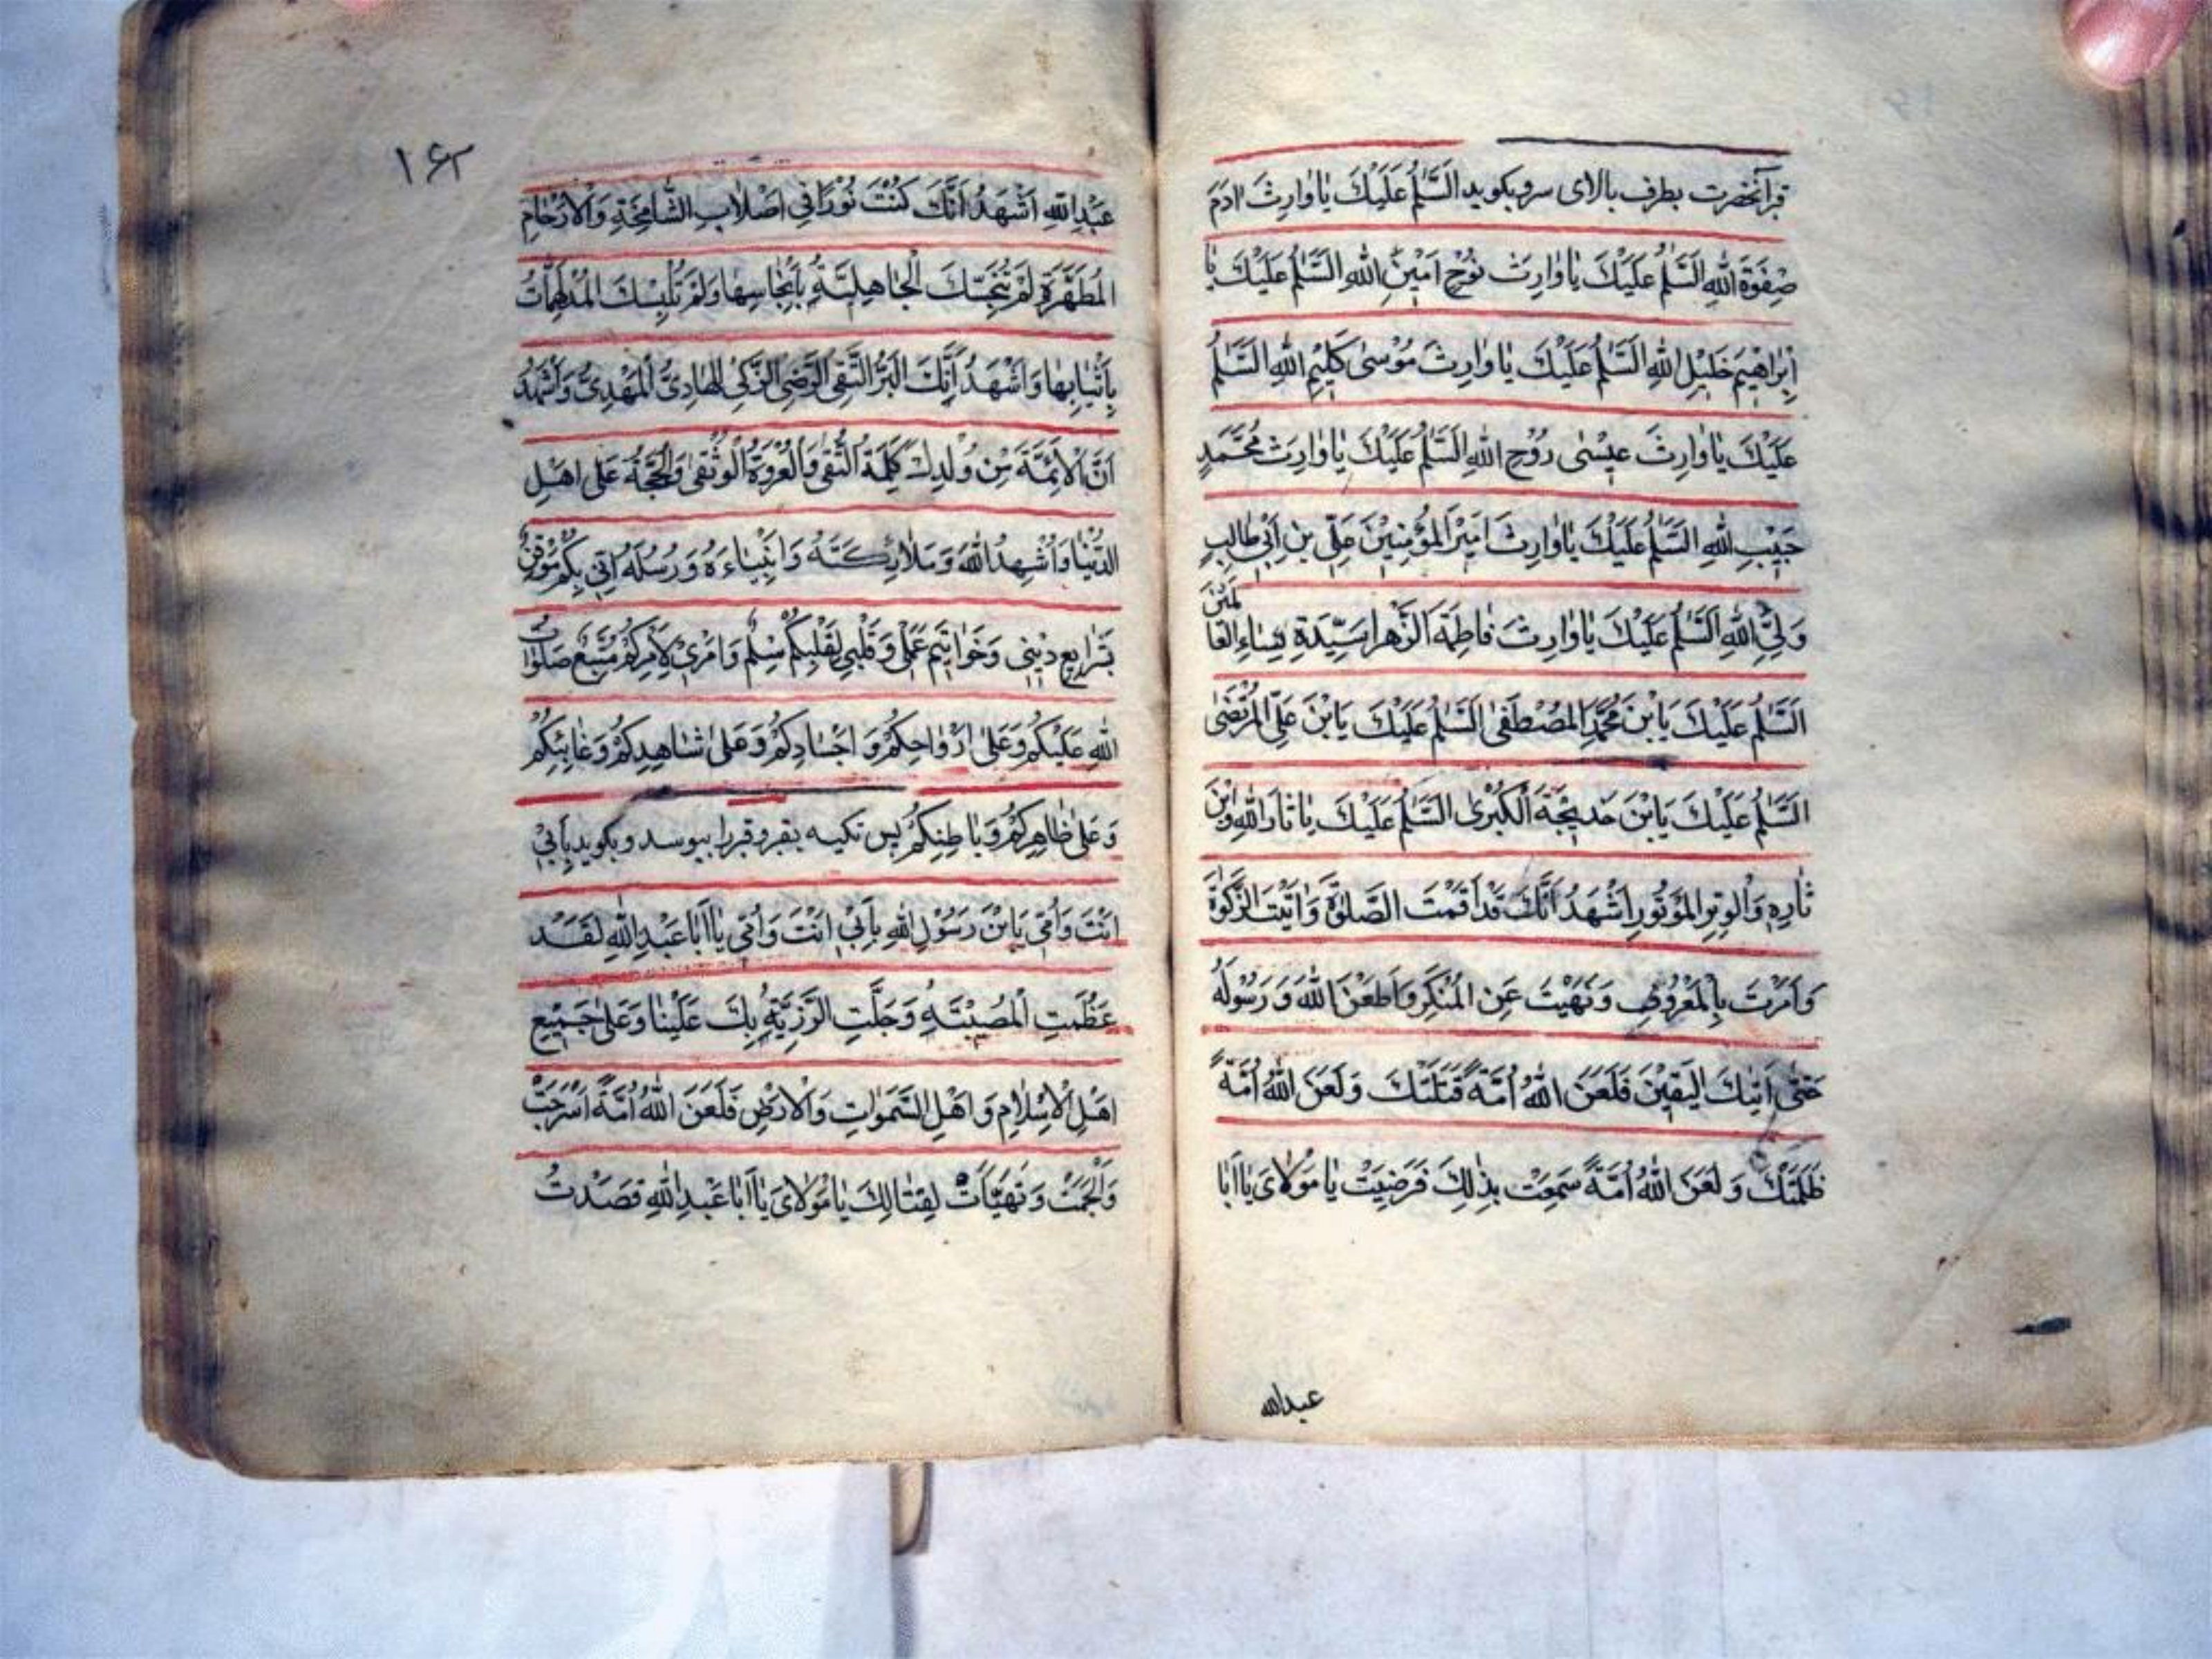 قبر آنحضرت بطرف بالای سر و بکوید اَلسَّلٰمُ عَلَيْكَ يٰا وٰارِثَ اٰدَمَ
صِفْوَةَ اللّٰهِ اَلسَّلٰمُ عَلَيْكَ يٰا وٰارِثَ نُوْحٍ اَمِيْنِ اللّٰهِ اَلسَّلٰمُ عَلَيْكَ يٰا
اِبْرٰاهِيْمَ خَلِيْلِ اللّٰهِ اَلسَّلٰمُ عَلَيْكَ يٰا وٰارِثَ مُوْسىٰ كَلِيْمِ اللّٰهِ اَلسَّلٰمُ
عَلَيْكَ يٰا وٰارِثَ عيْسٰى رُوْحِ اللّٰهِ اَلسَّلٰمُ عَلَيْكَ يٰا وٰارِثَ مُحَمَّدٍ
حَبِيْبِ اللّٰهِ اَلسَّلٰمُ عَلَيْكَ يٰا وٰارِثَ اَمِيْرَ الْمُؤْمِنِيْنَ عَلِىِّ بْنِ اَبِيْ طٰالِبٍ
وَلِىِّ اللّٰهِ اَلسَّلٰمُ عَلَيْكَ يٰا وٰارِثَ فٰاطِمَةَ الزَّهْرٰا سَيِّدَةِ نِسٰاءِ الْعٰا لَمِيْنَ
اَلسَّلٰمُ عَلَيْكَ يَابْنَ مُحَمَّدٍ الْمُصْطَفٰى اَلسَّلٰمُ عَلَيْكَ يَابْنَ عَلِىِّ الْمُرْتَضٰى
اَلسَّلٰمُ عَلَيْكَ يَابْنَ خَديْجَةَ الْكُبْرىٰ اَلسَّلٰمُ عَلَيْكَ يٰا ثٰارَ اللّٰهِ وَابْنَ
ثٰارِهِ وَالْوِتْرِ الْمَوْتُورِ اَشْهَدُ اَنَّكَ قَدْ اَقَمْتَ الصَّلٰوةَ وَاٰتَيْتَ الزَّكٰوةَ
وَاَمَرْتَ بِالْمَعْرُوْفِ وَنَهَيْتَ عَنِ الْمُنْكَرِ وَاَطَعْتَ اللّٰهَ وَرَسُوْلَهُ
حَتّٰى اَتٰيكَ الْيَقيْنَ فَلَعَنَ اللّٰهُ اُمَّةً قَتَلَتْكَ وَلَعَنَ اللّٰهُ اُمَّةً
ظَلَمَتْكَ وَلَعَنَ اللّٰهُ اُمَّةً سَمِعَتْ بِذٰلِكَ فَرَضِيَتْ يٰا مَوْلٰاىَ يٰا اَبٰا
عبدالله
۱۶۲
عَبْدِ اللّٰهِ اَشْهَدُ اَنَّكَ كُنْتَ نُوْرًا فِي اَصْلٰابِ الشّٰامِخَةِ وَالْاَرْحٰامِ
الْمُطَهَّرَةِ لَمْ تُنَجِّسْكَ الْجٰاهِلِيَّةُ بِاَنْجٰاسِهٰا وَلَمْ تُلْبِسْكَ الْمُدْلَهِمّٰاتُ
بِاَثْيٰابِهٰا وَاَشْهَدُ اَنَّكَ الْبَرُّ التَّقِىُّ الرَّضِىُّ الزَّكِىُّ الْهٰادِىُّ الْمَهْدِىُّ وَاَشْهَدُ
اَنَّ الْاَئِمَّةَ مِنْ وُلْدِكَ كَلِمَةُ التَّقْوٰى وَالْعُرْوَةُ الْوُثْقٰى وَالْحُجَّةُ عَلٰى اَهْلِ
الدُّنْيٰا وَاُشْهِدُ اللّٰهَ وَمَلٰائِكَتَهُ وَاَنْبِيٰاءَهُ وَرُسُلَهُ اَنّي بِكُمْ مُوْقِنٌ
بِشَرٰايِعِ ديْنِى وَخَوٰاتيْمِ عَمَلِى وَقَلْبِى لِقَلْبِكُمْ سِلْمٌ وَاَمْرِىْ لِاَمْرِكُمْ مُتَّبِعٌ صَلَوٰاتُ
اللّٰهِ عَلَيْكُمْ وَعَلٰى اَرْوٰاحِكُمْ وَاَجْسٰادِكُمْ وَعَلٰى شٰاهِدِكُمْ وَغٰائِبِكُمْ
وَعَلٰى ظٰاهِرِكُمْ وَبٰاطِنِكُمْ پس تکیه بقبر و قبر را ببوسد و بکوید بِاَبِىْ
اَنْتَ وَاُمّى يَابْنَ رَسُوْلِ اللّٰهِ بِاَبِيْ اَنْتَ وَاُمّى يٰا اَبٰا عَبْدِ اللّٰهِ لَقَدْ
عَظُمَتِ الْمُصيْبَةُ وَجَلَّتِ الرَّزِيَّةُ بِكَ عَلَيْنٰا وَعَلٰى جَمِيْعِ
اَهْلِ الْاِسْلٰامِ وَاَهْلِ السَّمٰوٰاتِ وَالْاَرْضِ فَلَعَنَ اللّٰهُ اُمَّةً اَسْرَجَتْ
وَاَلْجَمَتْ وَتَهَيَّأَتْ لِقِتٰالِكَ يٰا مَوْلٰاىَ يٰا اَبٰا عَبْدِ اللّٰهِ قَصَدْتُ